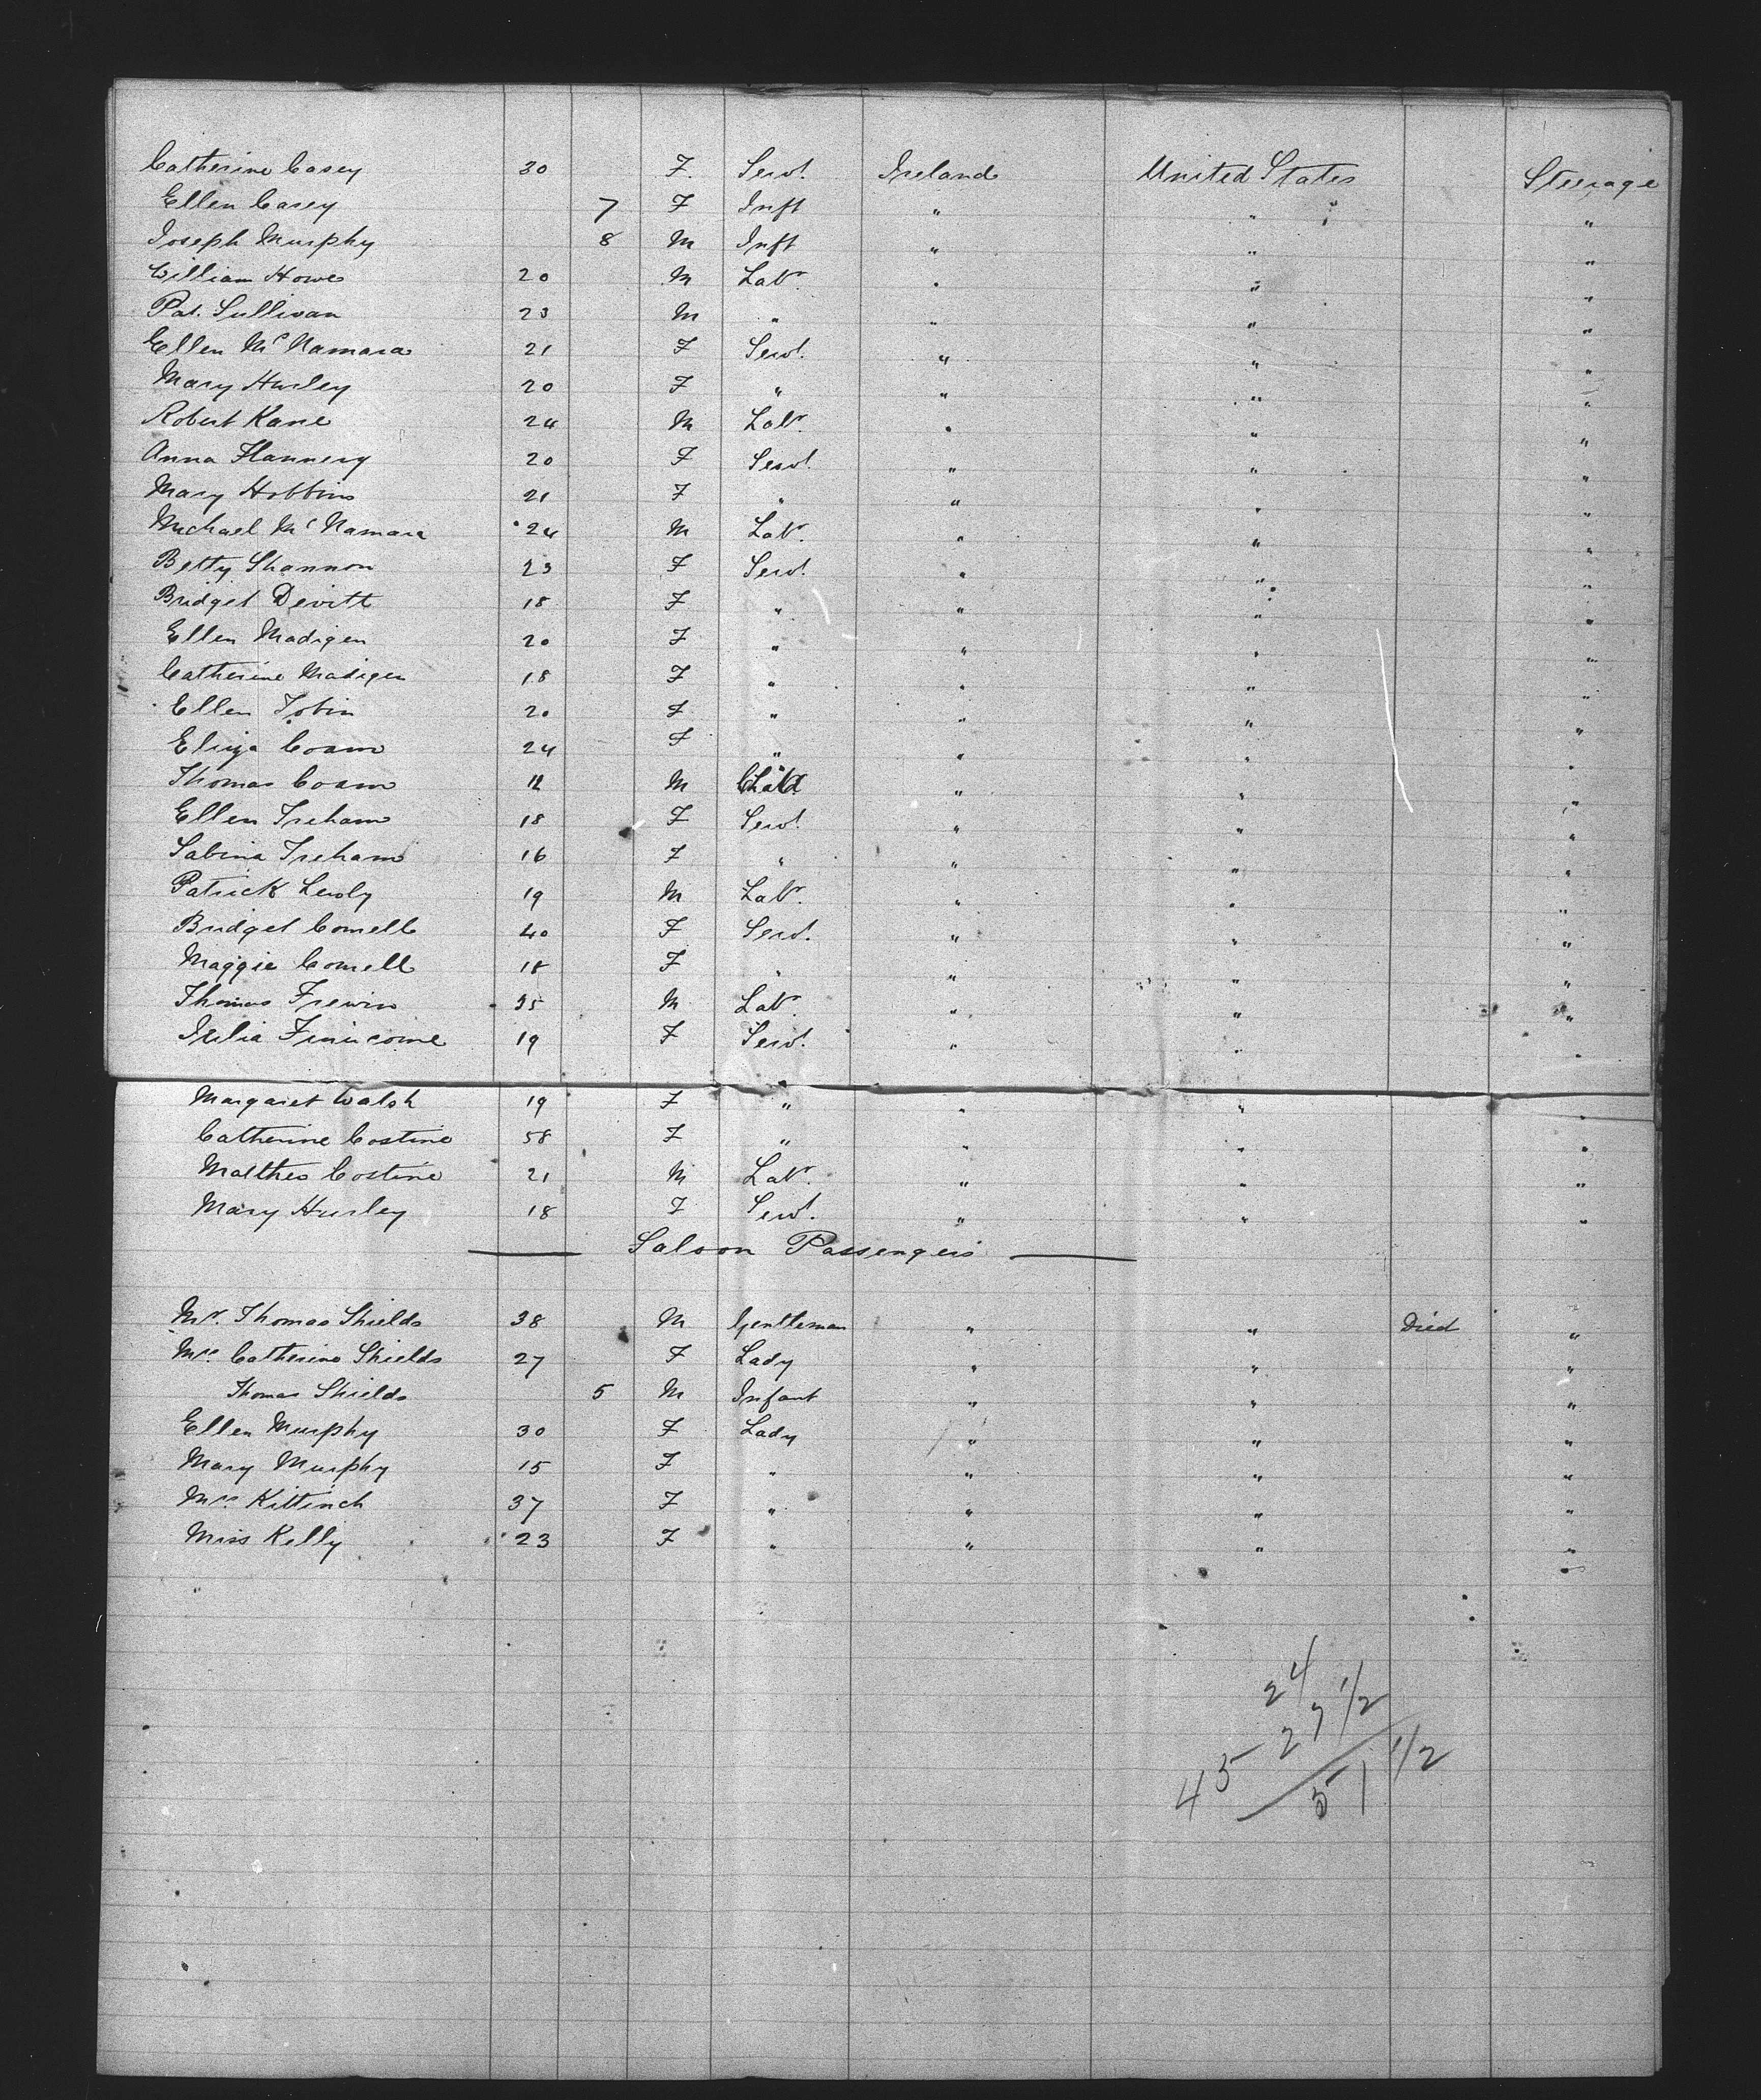 Catherine Casey 30 F. Servt. Ireland United States Steerage
Ellen Casey 7 F Inft " " "
Joseph Murphy 8 M Inft " " "
William Howe 20 M Labr. " " "
Pat. Sullivan 23 M " " " "
Ellen McNamara 21 F Servt. " " "
Mary Hurley 20 F " " " "
Robert Kane 24 M Labr. " " "
Anna Flannery 20 F Servt. " " "
Mary Hobbins 21 F " " " "
Michael McNamara 24 M Labr. " " "
Betty Shannon 23 F Servt. " " "
Bridget Devitt 18 F " " " "
Ellen Madigen 20 F " " " "
Catherine Madigen 18 F " " " "
Ellen Tobin 20 F " " " "
Eliza Coam 24 F " " " "
Thomas Coam M Child " " "
Ellen Treham 18 F Servt. " " "
Sabina Treham 16 F " " " "
Patrick 19 M Labr. " " "
Bridget Comell 40 F Servt. " " "
Maggie Comell 18 F " " " "
Thomas Frewin 35 M Labr. " " "
Julia Finucome 19 F Servt. " " "
Margaret Walsh 19 F " " " "
Catherine Costine 58 F " " " "
Matthew Costine 21 M Labr. " " "
Mary Hurley 18 F Servt. " " "
Saloon Passengers
Mr. Thomas Shields 38 M Gentleman " " Died "
Mrs. Catherine Shields 27 F Lady " " "
Thomas Shields 5 M Infant " " "
Ellen Murphy 30 F Lady " " "
Mary Murphy 15 F " " " "
Mrs. Kittinch 37 F " " " "
Miss Kelly 23 F " " " "
24
27 1/2
45 51 1/2